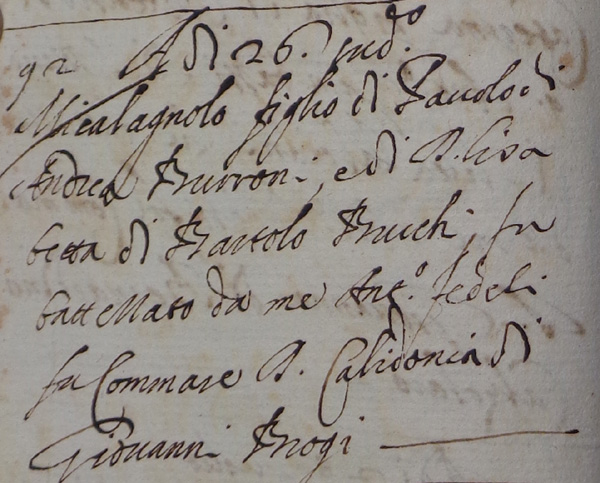 92 A dì 26. sud.º
Micalagnolo figlio di Pauolo di
Andrea Burroni, e di D. Lisa
betta di Bartolo Bucchi, fu
battezzato da me Ant.º fedeli
fu Commare D. Calidonia di
Giovanni Brogi